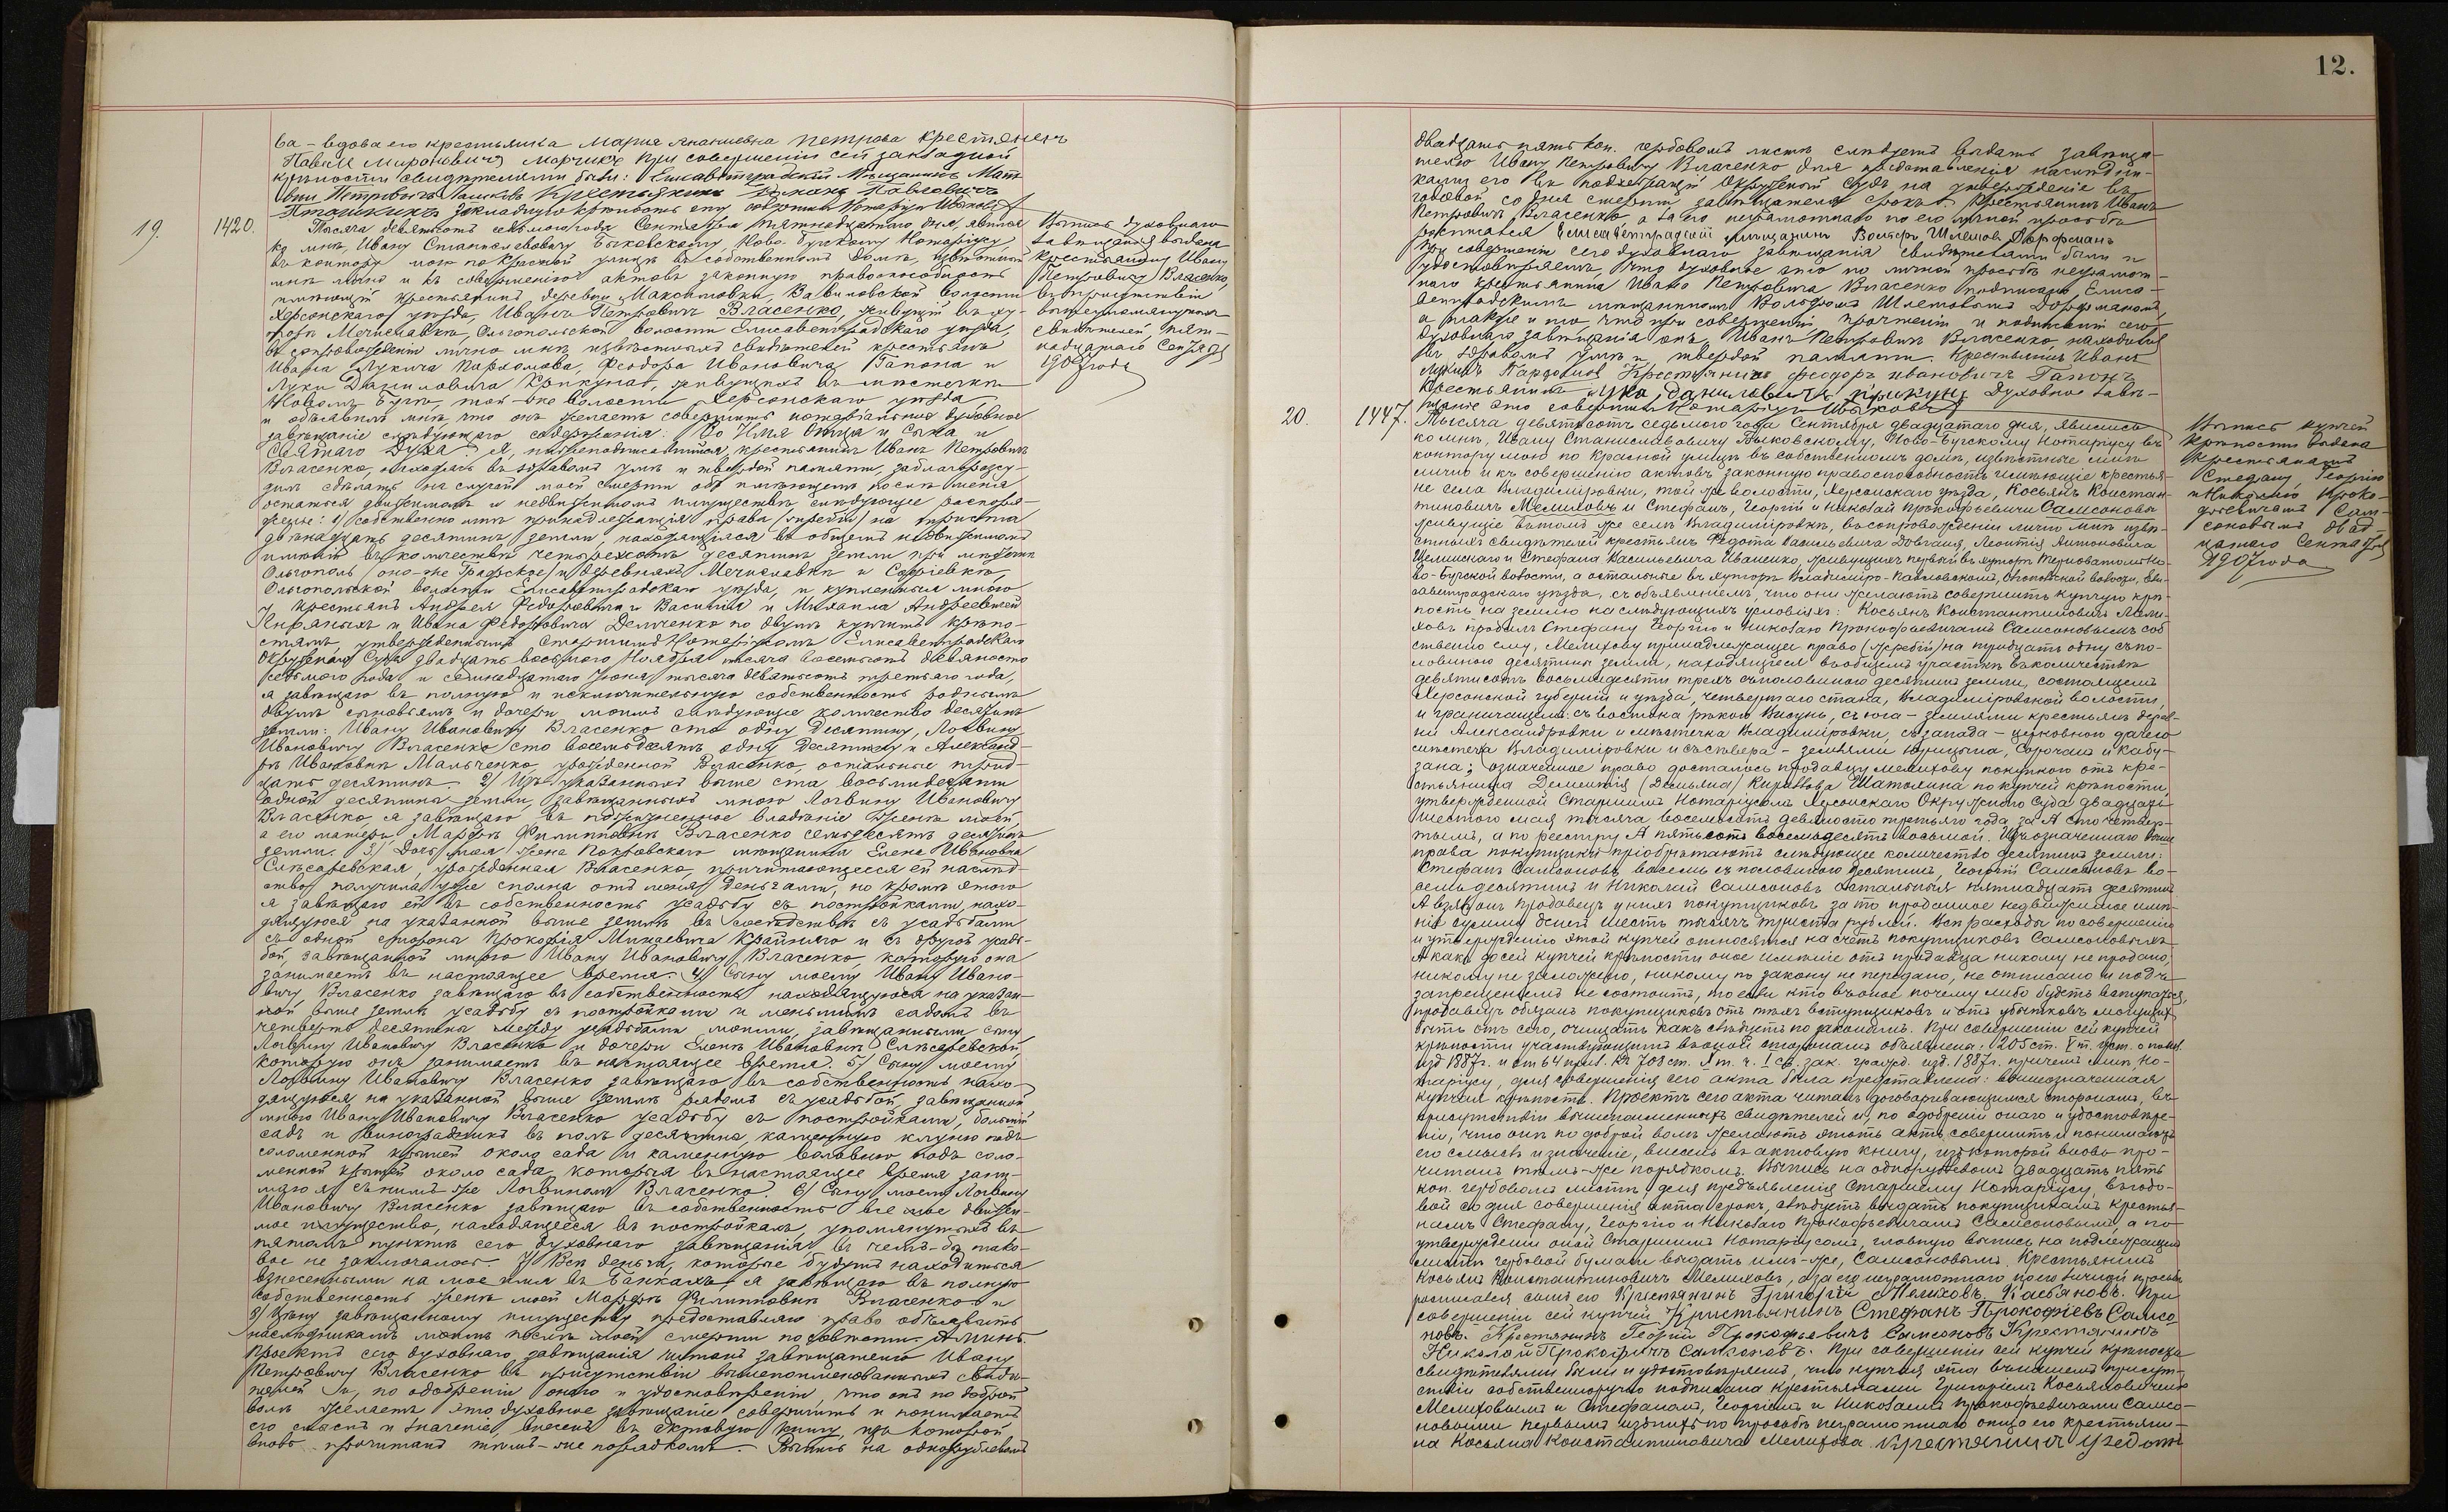 12.
ва - вдова его крестьянка Мария Петрова Крестянинъ
Павелъ Мироновичъ Марчикъ При совершеніи сей закладной
крѣпости свидѣтелями были: Елисаветградскій Мѣщанинъ
Петровичъ Крестьянинъ Павловичъ
закладную крѣпость эту Нотаріусъ
19.
1420.
Тысяча девятьсотъ седьмого года Сентября пятнадцатаго дня, явился
ко мнѣ, Ивану Станиславовичу Быковскому, Ново-Бугскому Нотаріусу,
въ контору мою по Красной улицѣ въ собственномъ домѣ, извѣстный
мнѣ лично и къ совершенію актовъ законную правоспособность
имѣющій крестьянинъ деревни Максимовки, Вавиловской волости
Херсонскаго уѣзда, Иванъ Петровичъ Власенко, живущій въ ху-
торѣ Мечиславкѣ, Ольгопольской волости Елисаветградскаго уѣзда,
въ сопровожденіи лично мнѣ извѣстныхъ свидѣтелей крестьянъ
Ивана Лукича Пархомова, Феодора Ивановича Гапона и
Луки Даниловича Крикуна, живущихъ въ мѣстечкѣ
Новомъ-Бугѣ, той-же волости Херсонскаго уѣзда,
и объявилъ мнѣ, что онъ желаетъ совершить нотаріальное духовное
завѣщаніе слѣдующаго содержанія: Во Имя Отца и Сына и
Святаго Духа. Я, нижеподписавшійся, крестьянинъ Иванъ Петровичъ
Власенко, находясь въ здравомъ умѣ и твердой памяти, заблагоразсу-
дилъ сдѣлать на случай моей смерти объ имѣющемъ послѣ меня
остаться движимомъ и недвижимомъ имуществѣ слѣдующее распоря-
женіе: 1) Собственно мнѣ принадлежащія права (жребій) на триста
двѣнадцать десятинъ земли, находящіяся въ общемъ недвижимомъ
имѣніи въ количествѣ четырехсотъ десятинъ земли при мѣстечкѣ
Ольгополь (оно-же Графское) и деревняхъ Мечиславкѣ и Софіевкѣ,
Ольгопольской волости Елисаветградскаго уѣзда, и купленныя мною
у крестьянъ Андрея Федоровича и Василія и Михаила Андреевичей
и Ивана Федоровича Демченко по двумъ купчимъ крѣпо-
стямъ, утвержденнымъ Старшимъ Нотаріусомъ Елисаветградскаго
Окружнаго Суда двадцать восьмого Ноября тысяча восемьсотъ девяносто
седьмого года и семнадцатаго Іюня тысяча девятьсотъ третьяго года,
я завѣщаю въ полную и исключительную собственность роднымъ
двумъ сыновьямъ и дочери моимъ слѣдующее количество десятинъ
земли: Ивану Ивановичу Власенко сто одну десятину, Логвину
Ивановичу Власенко сто восемьдесятъ одну десятину и Александ-
рѣ Ивановнѣ Мальченко, урожденной Власенко, остальныя трид-
цать десятинъ. 2) Изъ указанныхъ выше ста восьмидесяти
одной десятины земли, завѣщанныхъ мною Логвину Ивановичу
Власенко, я завѣщаю въ пожизненное владѣніе женѣ моей,
а его матери Марфѣ Филипповнѣ Власенко семьдесятъ десятинъ
земли. 3) Дочь моя жена Покровскаго мѣщанина Елена Ивановна
Слѣсаревская, урожденная Власенко, причитающееся ей наслѣд-
ство получила уже сполна отъ меня деньгами, но кромѣ этого
я завѣщаю ей въ собственность усадьбу съ постройками, нахо-
дящуюся на указанной выше землѣ въ сосѣдствѣ съ усадьбами
съ одной стороны Прокофія Минаевича Крайняго и съ другой усадь-
бой, завѣщанной мною Ивану Ивановичу Власенко, которую она
занимаетъ въ настоящее время. 4) Сыну моему Ивану Ивано-
вичу Власенко завѣщаю въ собственность находящуюся на указан-
ной выше землѣ усадьбу съ постройками и меньшимъ садомъ въ
четверть десятины между усадьбами моими, завѣщанными сыну
Логвину Ивановичу Власенко и дочери Еленѣ Ивановнѣ Слѣсаревской
которую онъ занимаетъ въ настоящее время. 5) Сыну моему
Логвину Ивановичу Власенко завѣщаю въ собственность нахо-
дящуюся на указанной выше землѣ рядомъ съ усадьбой, завѣщанной
мною Ивану Ивановичу Власенко усадьбу съ постройками, большій
садъ и виноградникъ въ полъ десятины, каменную клуню подъ
соломенной крышей около сада и каменную воловню подъ соло-
менной крышей около сада, которыя въ настоящее время зани-
маю я съ нимъ же Логвиномъ Власенко. 6) Сыну моему Логвину
Ивановичу Власенко завѣщаю въ собственность все мое движи-
мое имущество, находящееся въ постройкахъ, упомянутыхъ въ
пятомъ пунктѣ сего духовнаго завѣщанія, въ чемъ-бы тако-
вое не заключалось. 7) Всѣ деньги, которые будутъ находиться
взнесенными на мое имя въ Банкахъ, я завѣщаю въ полную
собственность женѣ моей Марфѣ Филипповнѣ Власенко и
8) Цѣну завѣщанному имуществу предоставляю право объявить
наслѣдникамъ моимъ послѣ моей смерти по совѣсти. Аминь.
Проектъ сего духовнаго завѣщанія читанъ завѣщателю Ивану
Петровичу Власенко въ присутствіи вышепоименованныхъ свидѣ-
телей и, по одобреніи онаго и удостовѣреніи, что онъ по доброй
волѣ желаетъ это духовное завѣщаніе совершить и понимаетъ
его смыслъ и значеніе, внесенъ въ актовую книгу, изъ которой
вновь прочитанъ тѣмъ-же порядкомъ. Выпись на однорублевомъ
Выпись духовнаго
завѣщанія выдана
крестьянину Ивану
Петровичу Власенко,
въ присутствіи
вышеупомянутыхъ
свидѣтелей пят-
надцатаго Сентября
1907 года
двадцать пять коп. гербовомъ листѣ слѣдуетъ выдать завѣща-
телю Ивану Петровичу Власенко для представленія наслѣдни-
ками его въ подлежащій Окружный Судъ на утвержденіе въ
годовой со дня смерти завѣщателя срокъ. Крестьянинъ Иванъ
Петровичъ Власенко, а за его неграмотнаго по его личной просьбѣ
росписался Елисаветградскій мѣщанинъ Вольфъ Шлемовъ Дорфманъ
При совершеніи сего духовнаго завѣщанія свидѣтелями были и
удостовѣряемъ, что духовное это по личной просьбѣ неграмот-
наго крестьянина Ивана Петровича Власенко подписано Елиса-
ветградскимъ мѣщаниномъ Вольфомъ Шлемовымъ Дорфманомъ,
а также и то, что при совершеніи, прочтеніи и подписаніи сего
духовнаго завѣщанія онъ, Иванъ Петровичъ Власенко, находился
въ здравомъ умѣ и твердой памяти. Крестьянинъ Иванъ
Лукичъ Пархомовъ Крестьянинъ Феодоръ Ивановичъ Гапонъ
Крестьянинъ Лука Даниловичъ Крикунъ Духовное завѣ-
щаніе это совершилъ Нотаріусъ Быковскій
20.
1447.
Тысяча девятьсотъ седьмого года Сентября двадцатаго дня, явились
ко мнѣ, Ивану Станиславовичу Быковскому, Ново-Бугскому Нотаріусу въ
контору мою по Красной улицѣ въ собственномъ домѣ, извѣстные мнѣ
лично и къ совершенію актовъ законную правоспособность имѣющіе крестья-
не села Владиміровки, той же волости, Херсонскаго уѣзда, Косьянъ Констан-
тиновичъ Мелиховъ и Стефанъ, Георгій и Николай Прокофьевичи Самсоновы
живущіе въ томъ же селѣ Владиміровкѣ, въ сопровожденіи лично мнѣ извѣ-
стныхъ свидѣтелей крестьянъ Федота Васильевича Довганя, Леонтія Антоновича
Целинскаго и Стефана Касильевича Иваненко, живущихъ первый въ хуторѣ Терноватомъ Но-
во-Бугской волости, а остальные въ хуторѣ Владиміро-Павловскомъ, волости, Ели-
саветградскаго уѣзда, съ объявленіемъ, что они желаютъ совершить купчую крѣ-
пость на землю на слѣдующихъ условіяхъ: Косьянъ Константиновичъ Мели-
ховъ продалъ Стефану Георгію и Николаю Прокофьевичамъ Самсоновымъ соб
ственно ему, Мелихову принадлежащее право (жребій) на тридцать одну съ по-
ловиною десятину земли, находящіеся въ общемъ участкѣ въ количествѣ
девятисотъ восьмидесяти трехъ съ половиною десятинъ земли, состоящемъ
Херсонской губерніи и уѣзда, четвертаго стана, Владиміровской волости,
и граничащемъ: съ востока рѣкою Висунь, съ юга - землями крестьянъ дерев-
ни Александровки и мѣстечка Владиміровки, съ запада - церковною дачею
мѣстечка Владиміровки и съ сѣвера - землями Юрицына, Сорочана и Кабу-
зана; означенное право досталось продавцу Мелихову покупкою отъ кре-
стьянина Дементія (Демьяна) Кириллова Шатохина по купчей крѣпости,
утвержденной Старшимъ Нотаріусомъ Херсонскаго Окружнаго Суда двадцать
шестого мая тысяча восемьсотъ девяносто третьяго года за № сто четвер-
тымъ, а по реестру № пятьсотъ восемьдесятъ восьмой. Изъ означеннаго выше
права покупщики пріобрѣтаютъ слѣдующее количество десятинъ земли:
Стефанъ Самсоновъ восемь съ половиною десятинъ, Георгій Самсоновъ во-
семь десятинъ и Николай Самсоновъ остальныя пятнадцать десятинъ
А взялъ онъ продавецъ у нихъ покупщиковъ за то проданное недвижимое имѣ-
ніе сумму денегъ шесть тысячъ триста рублей. Всѣ расходы по совершенію
и утвержденію этой купчей относятся на счетъ покупщиковъ Самсоновыхъ.
А какъ до сей купчей крѣпости оное имѣніе отъ продавца никому не продано,
никому не заложено, никому по закону не передано, не отписано и подъ
запрещеніемъ не состоитъ, то если кто въ оное почему либо будетъ вступаться,
продавецъ обязанъ покупщиковъ отъ тѣхъ вступщиковъ и отъ убытковъ могущихъ
быть отъ сего, очищать какъ слѣдуетъ по законамъ. При совершеніи сей купчей
крѣпости участвующимъ въ оной сторонамъ объявлена: 205 ст. V т. Уст. о пошл.
изд 1887 г. и ст 64 прил. къ 708 ст. X т. ч. I св. зак. гражд. изд. 1887 г. причемъ мнѣ, но-
таріусу, для совершенія сего акта была представлена: вышеозначенная
купчая крѣпость. Проектъ сего акта читанъ договаривающимся сторонамъ, въ
присутствіи вышепоименныхъ свидѣтелей и, по одобреніи онаго и удостовѣре-
ніи, что они по доброй волѣ желаютъ этотъ актъ совершить и понимаютъ
его смыслъ и значеніе, внесенъ въ актовую книгу, изъ которой вновь про-
читанъ тѣмъ-же порядкомъ. Выпись на однорублевомъ двадцать пять
коп. гербовомъ листѣ, для предъявленія Старшему Нотаріусу, въ годо-
вой со дня совершенія акта срокъ, слѣдуетъ выдать покупщикамъ крестья-
намъ Стефану, Георгію и Николаю Прокофьевичамъ Самсоновымъ, а по
утвержденіи оной Старшимъ Нотаріусомъ, главную выпись на подлежащемъ
листѣ гербовой бумаги выдать имъ-же, Самсоновымъ. Крестьянинъ
Косьянъ Константиновичъ Мелиховъ, а за его неграмотнаго по его личной просьбѣ
росписался сынъ его Крестьянинъ Григорій Мелиховъ Касьяновъ. При
совершеніи сей купчей Крестьянинъ Стефанъ Прокофіевъ Самсо
новъ. Крестянинъ Георгій Прокофьевичъ Самсоновъ Крестянинъ
Николай Прокофичъ Самсоновъ. При совершеніи сей купчей крѣпости
свидѣтелями были и удостовѣряемъ, что купчая эта въ нашемъ присут-
ствіи собственноручно подписана крестьянами Григоріемъ Косьяновичемъ
Мелиховымъ и Стефаномъ, Георгіемъ и Николаемъ Прокофьевичами Самсо-
новыми первымъ изъ нихъ по просьбѣ неграмотнаго отца его крестьяни-
на Косьяна Константиновича Мелихова. Крестянинъ Федотъ
Выпись купчей
крѣпости выдана
крестьянамъ
Стефану, Георгію
и Николаю Проко-
фьевичамъ Сам-
соновымъ двад-
цатаго Сентября
1907 года